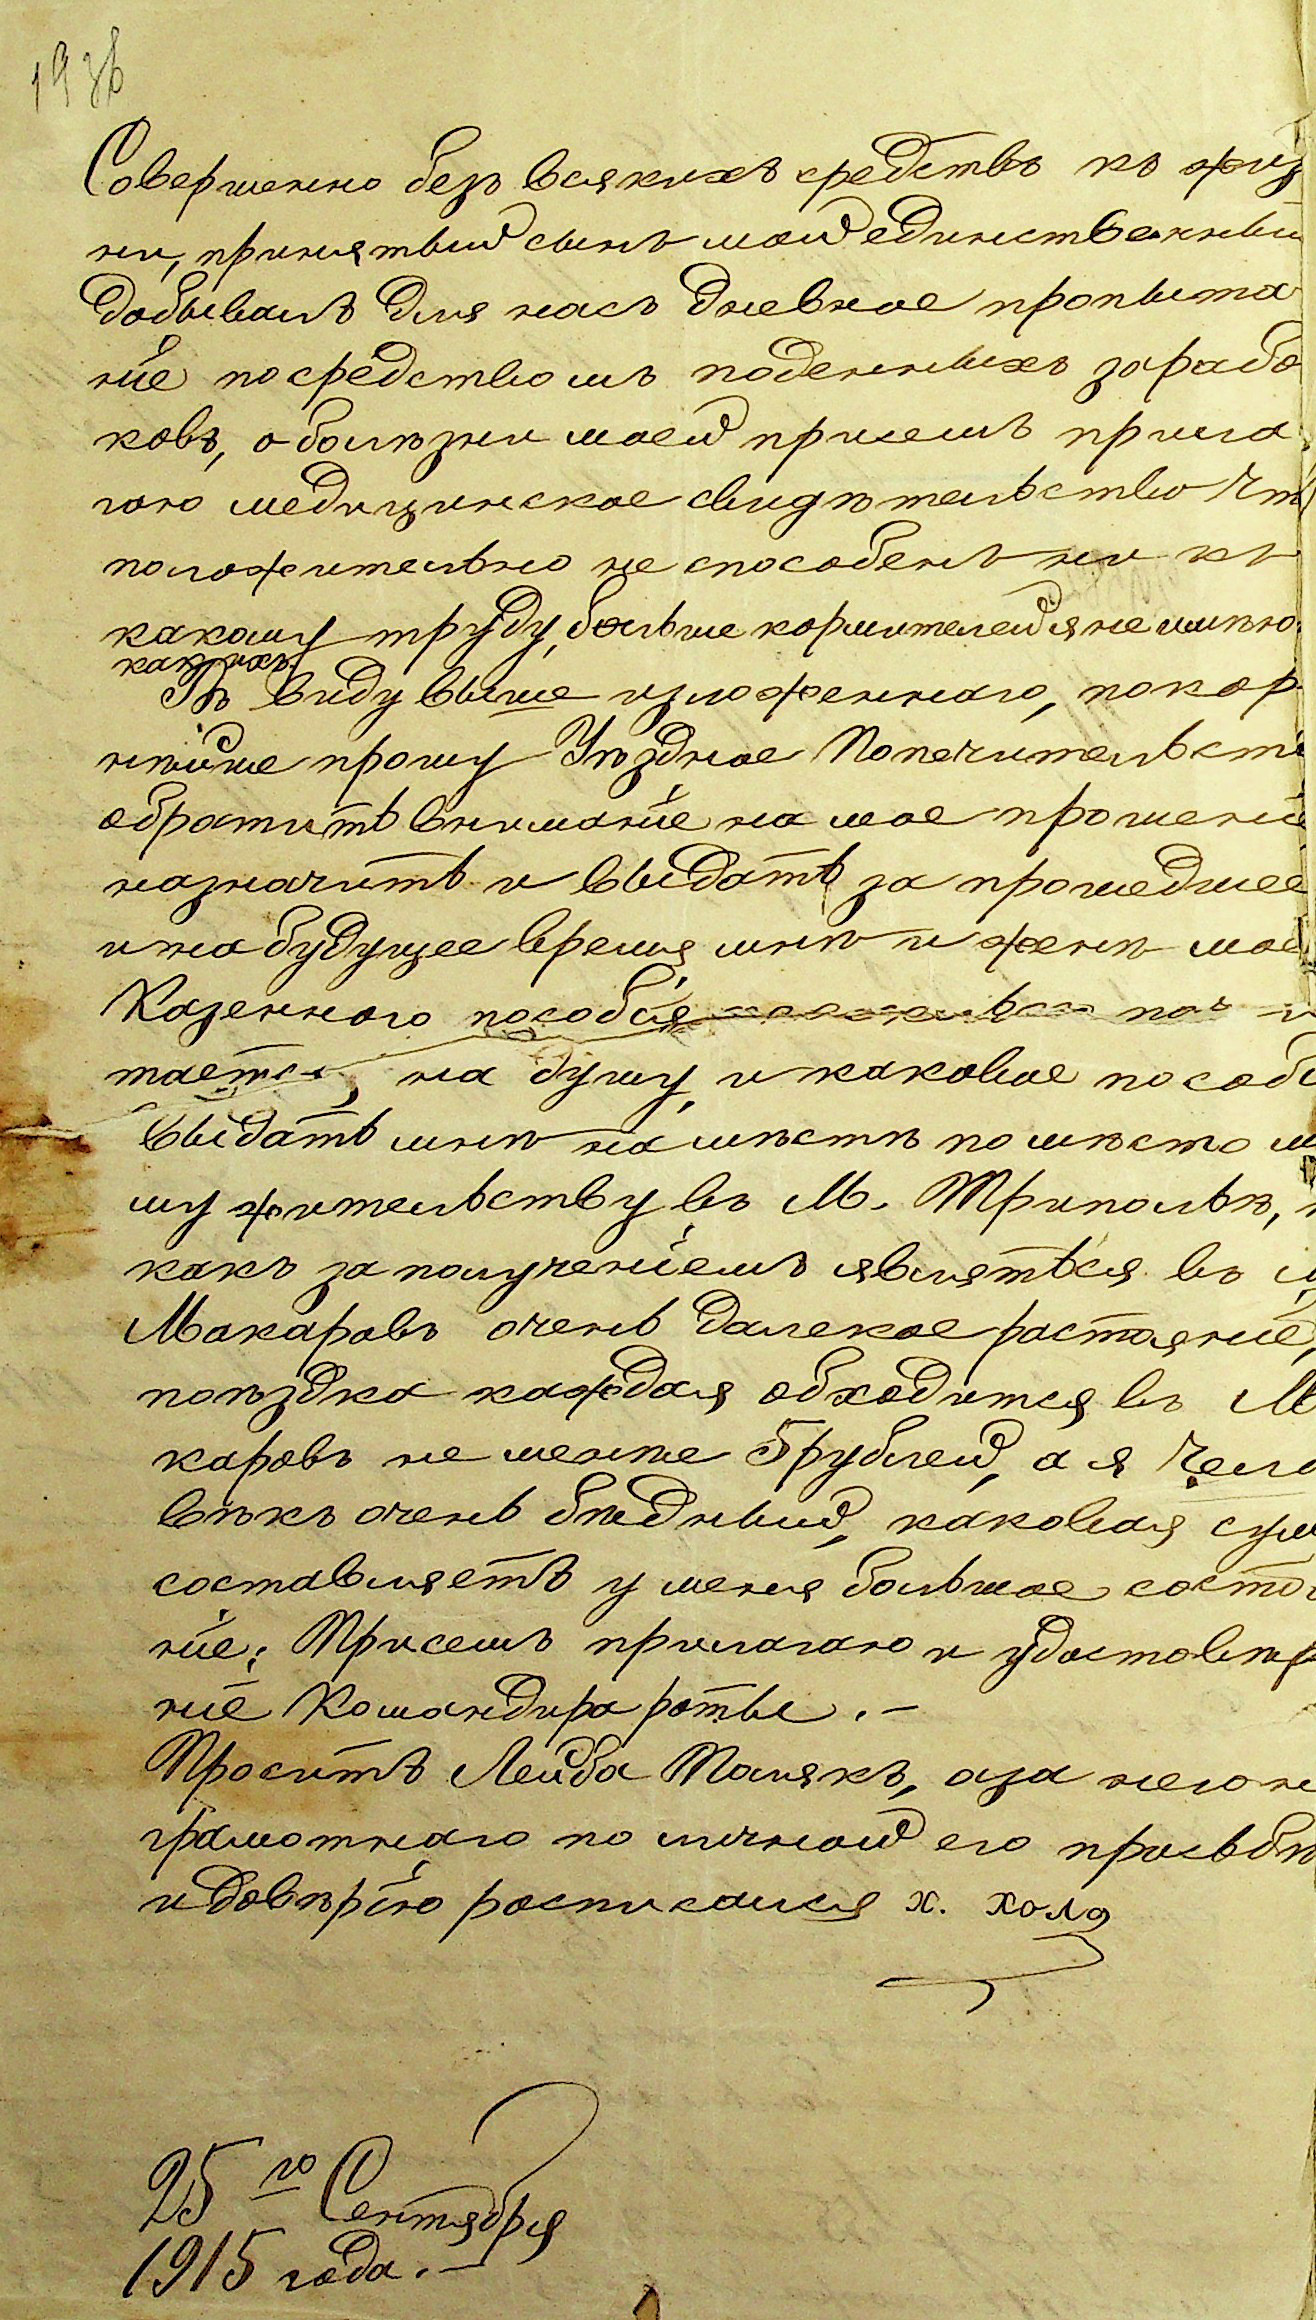 193б
Совершенно безъ всякихъ средствъ къ жиз
ни, принятый сынъ мой единственный
добывалъ для насъ дневное пропыта
ніе посредствомъ поденныхъ зарабо
ковъ, о болѣзни моей присемъ прила
гаю медицинское свидѣтельство что
положительно не способенъ ни къ
какому труду, больше кормителей я не имѣю
какихъ
Въ виду выше изложеннаго, покор
нѣйше прошу Уѣздное Попечительств
обратить вниманіе на мое прошені
назначить и выдать за прошедшее
и на будущее время мнѣ и женѣ мое
Казенного пособія
на душу, и каковое пособі
выдать мнѣ на мѣстѣ по мѣсто м
му жительству въ М. Триполѣ,
какъ за полученіемъ являться въ м
Макаровъ очень далекое растояніе,
поѣздка каждая обходится въ М
каровъ не менѣе 5 рублей, а я чело
вѣкъ очень бѣдный, каковая сум
составляетъ у меня большое состоя
ніе. Присемъ прилагаю и удостовѣр
ніе Командира роты. –
Проситъ Лейба Полякъ, а за него не
грамотнаго по личной его просьбѣ
и довѣрію росписался х. хола
25го Сентября
1915 года. –